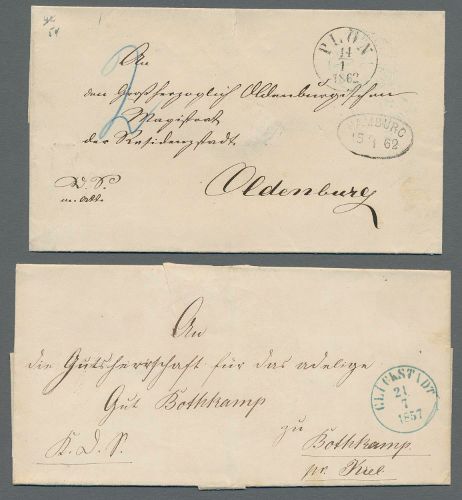 2
PLÖN
14
1
1862
An
den Großherzoglich Oldenburgischen
Magistrat
der Residenzstadt
HAMBURG
15 1 62
Oldenburg
An
die Gutsherrschaft für das adelige
Gut Bothkamp
GLÜCKSTADT
21
7
1857
zu
K. D. S.
Bothkamp
pr. Kiel